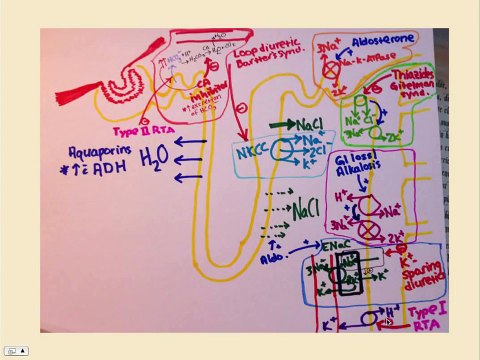 HCO3- + H+
CA
H2O
CA
inhibitor
* ↑ excretion
of HCO3-
Type II RTA
Loop diuretic
Bartter's Synd.
3Na+
Aldosterone
Na-K-ATPase
2K+
Thiazides
Gitelman
synd.
Na+ Cl-
3Na+
2K+
Aquaporins
* ↑ ē ADH
H2O
NaCl
NKCC
Na+
2Cl-
K+
GI loss
Alkalosis
H+
Na+
3Na+
2K+
NaCl
↑
Aldo.
ENaC
3Na+
K+
K+
K+
Sparing
diuretic
K+
H+
Type I
RTA